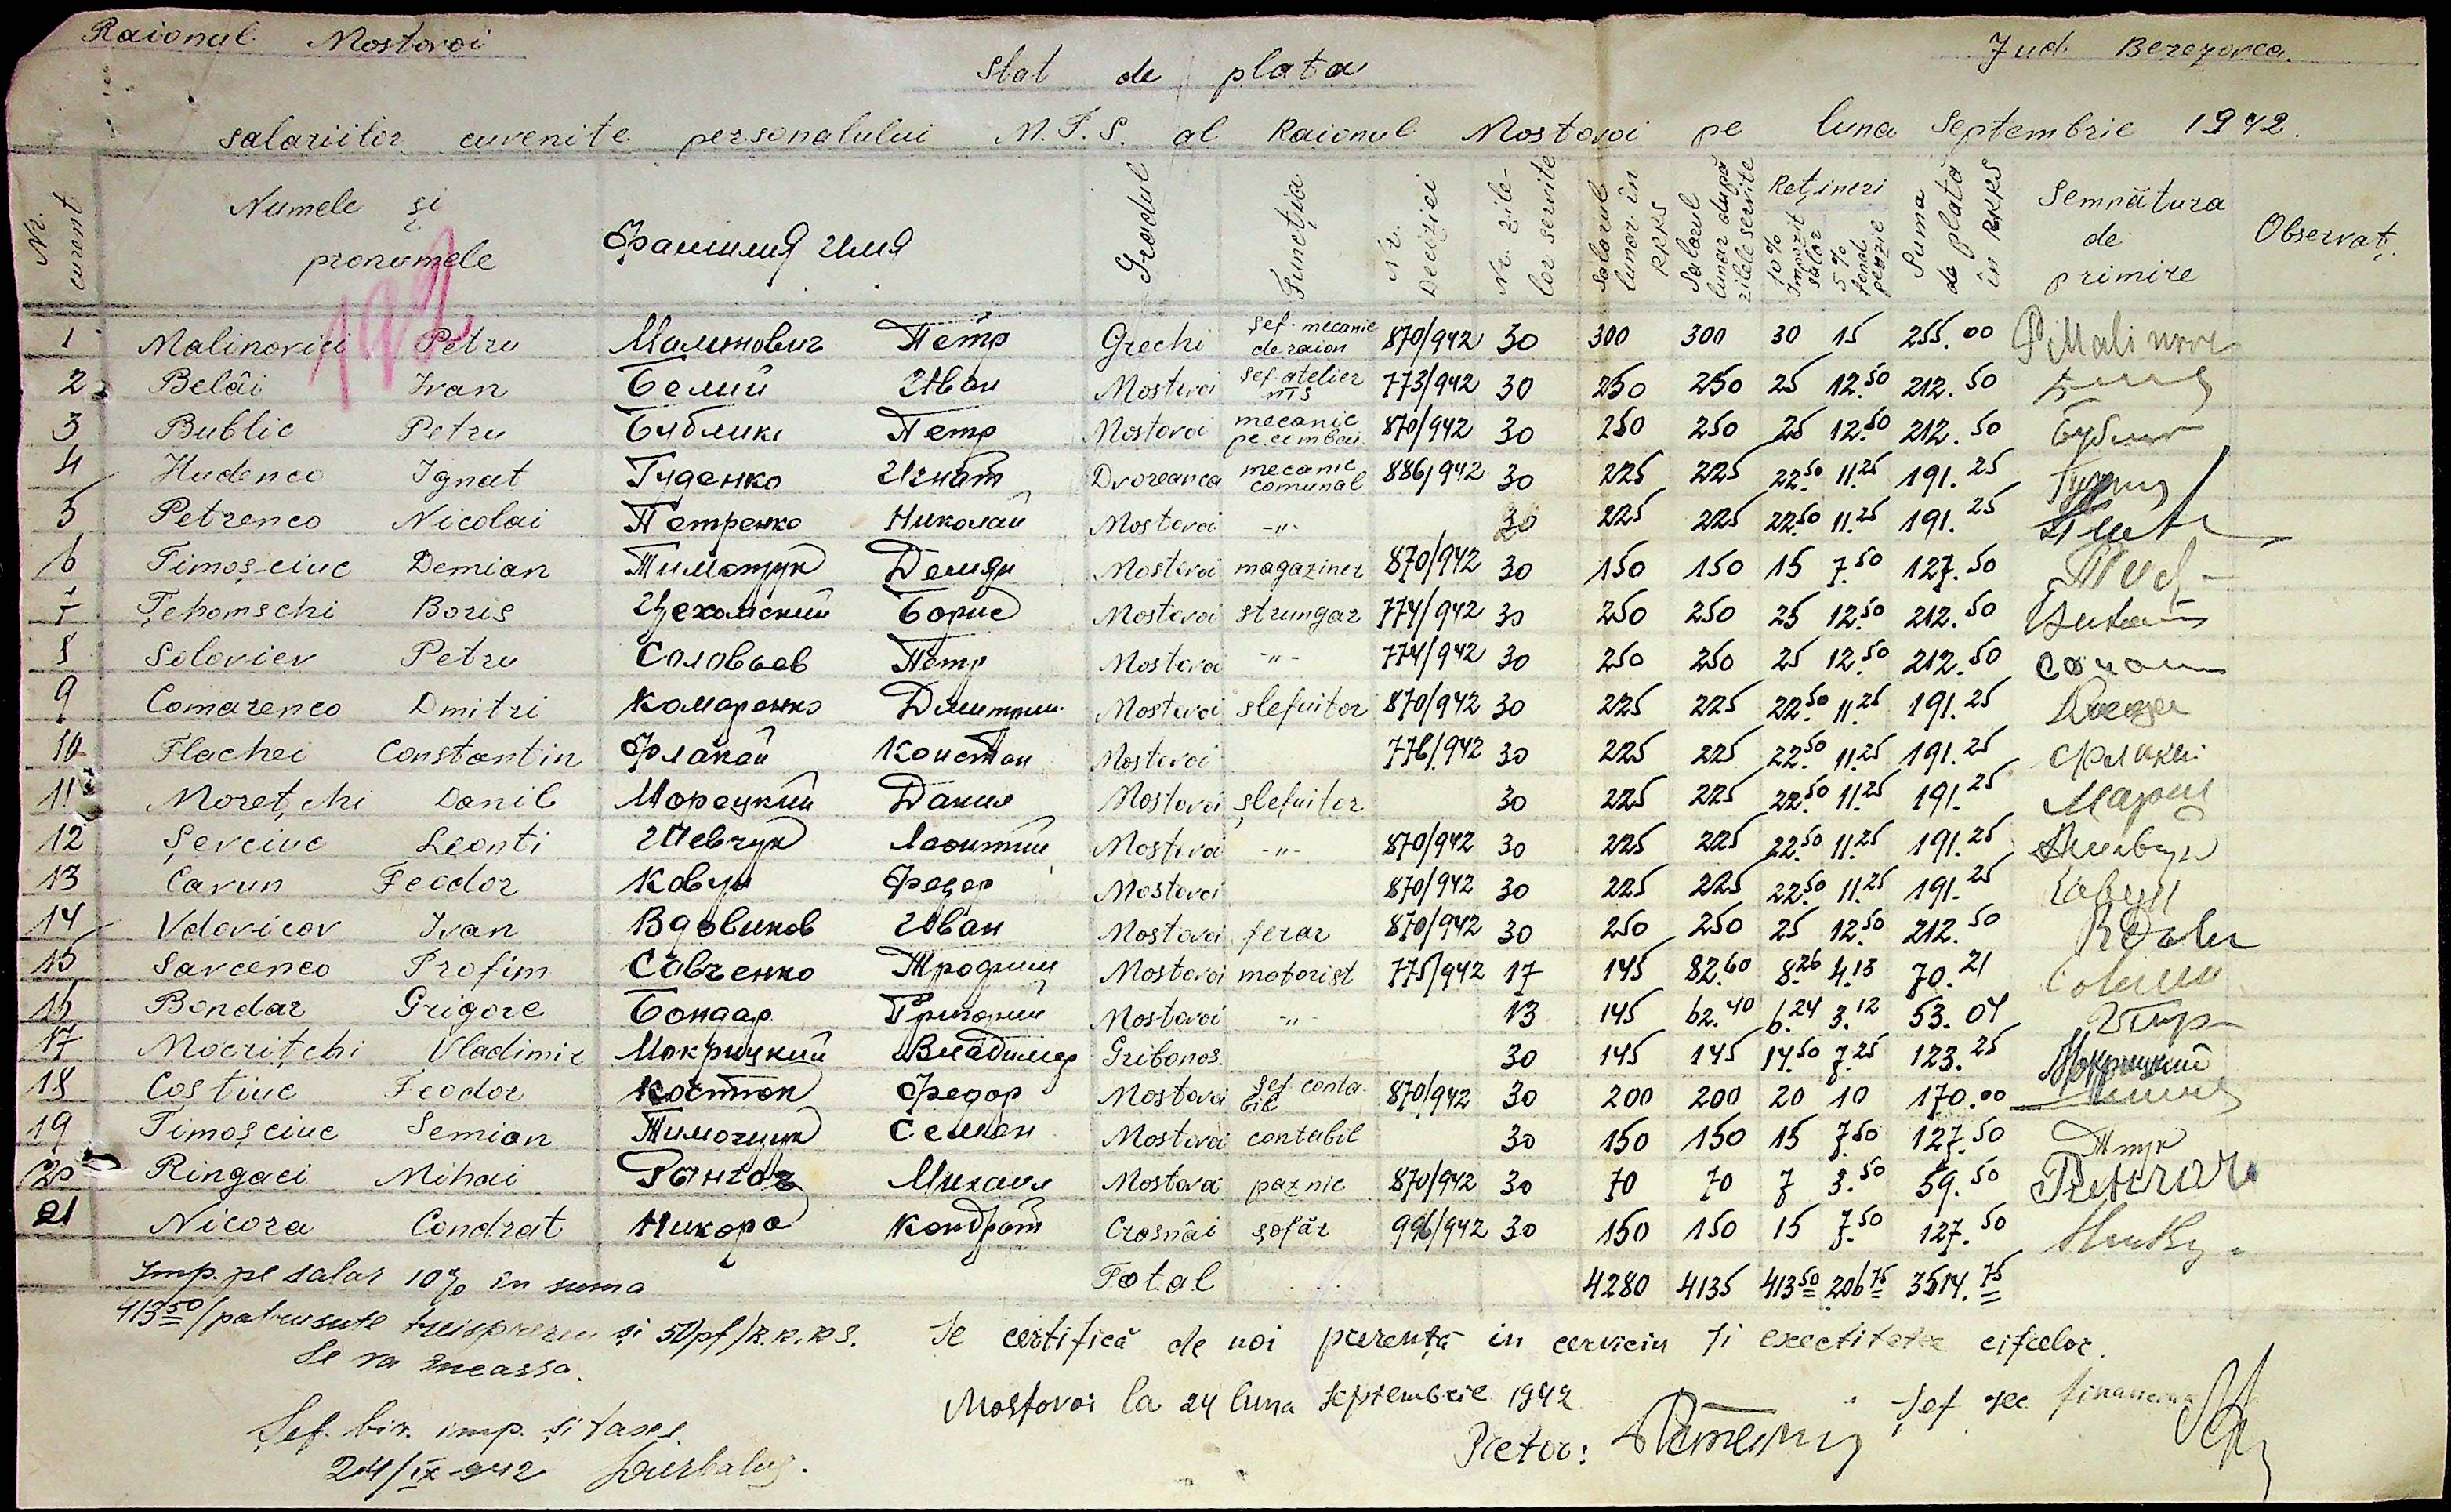 Raionul Mostovoi
Jud. Berezovca.
Stat de plata
salariilor cuvenite personalului M.T.S. al Raionul Mostovoi pe luna Septembrie 1942.
Nr. curent
Numele și pronumele
Фамилия Имя
Gradul
Funcția
Nr. Deciziei
Nr. zilelor servite
Salarul lunar în RKKS
Salarul lunar după zilele servite
Rețineri
10% Impozit salar
5% fond penzie
Suma de plată în RKKS
Semnătura de primire
Observaț.
192
1 Malinovici Petru Малинович Пётр Grechi șef. mecanic de raion 870/942 30 300 300 30 15 255.00
2 Belâi Ivan Белий Иван Mostovoi șef atelier 773/942 30 250 250 25 12.50 212.50
3 Bublic Petru Бублик Петр Mostovoi mecanic 870/942 30 250 250 25 12.50 212.50
4 Hudenco Ignat Гуденко Игнат Dvoreanca mecanic comunal 886/942 30 225 225 22.50 11.25 191.25
5 Petrenco Nicolai Петренко Николай Mostovoi -"- 30 225 225 22.50 11.25 191.25
6 Timoșciuc Demian Тимощук Демян Mostovoi magaziner 870/942 30 150 150 15 7.50 127.50
7 Țehomschi Boris Цехомский Борис Mostovoi strungar 774/942 30 250 250 25 12.50 212.50
8 Soloviev Petru Соловьев Пётр Mostovoi -"- 774/942 30 250 250 25 12.50 212.50
9 Comarenco Dmitri Комаренко Дмитрии Mostovoi slefuitor 870/942 30 225 225 22.50 11.25 191.25
10 Flachei Constantin Флакей Констан Mostovoi 776/942 30 225 225 22.50 11.25 191.25
11 Morețchi Danil Морецкий Данил Mostovoi șlefuitor 30 225 225 22.50 11.25 191.25
12 Șevciuc Leonti Шевчук Леонтий Mostovoi -"- 870/942 30 225 225 22.50 11.25 191.25
13 Cavun Feodor Ковун Федор Mostovoi 870/942 30 225 225 22.50 11.25 191.25
14 Vdovicov Ivan Вдовиков Иван Mostovoi ferar 870/942 30 250 250 25 12.50 212.50
15 Savcenco Trofim Савченко Трофим Mostovoi motorist 775/942 17 145 82.60 8.26 4.13 70.21
16 Bondar Grigore Бондар Григорий Mostovoi -"- 13 145 62.40 6.24 3.12 53.04
17 Mocrițchi Vladimir Мокрицкий Владимир Gribonos. 30 145 145 14.50 7.25 123.25 Мокрицкий
18 Costiuc Feodor Костюк Федор Mostovoi șef contabil 870/942 30 200 200 20 10 170.00
19 Timoșciuc Semion Тимощук Семен Mostovoi contabil 30 150 150 15 7.50 127.50
20 Ringaci Mihai Рингач Михаил Mostovoi paznic 870/942 30 70 70 7 3.50 59.50
21 Nicora Condrat Никора Кондрат Crasnâi șofăr 996/942 30 150 150 15 7.50 127.50
Total 4280 4135 413.50 206.75 3514.75
Imp. pe salar 10% în suma
413.50/patrusute treisprezece și 50pf/R.K.K.S.
Se va încassa.
Se certifică de noi prezența in serviciu și exactitatea cifrelor.
Mostovoi la 24 luna Septembrie 1942
Șef. bir. imp. și taxe
24/IX 942
Pretor:
Șef sec financiar